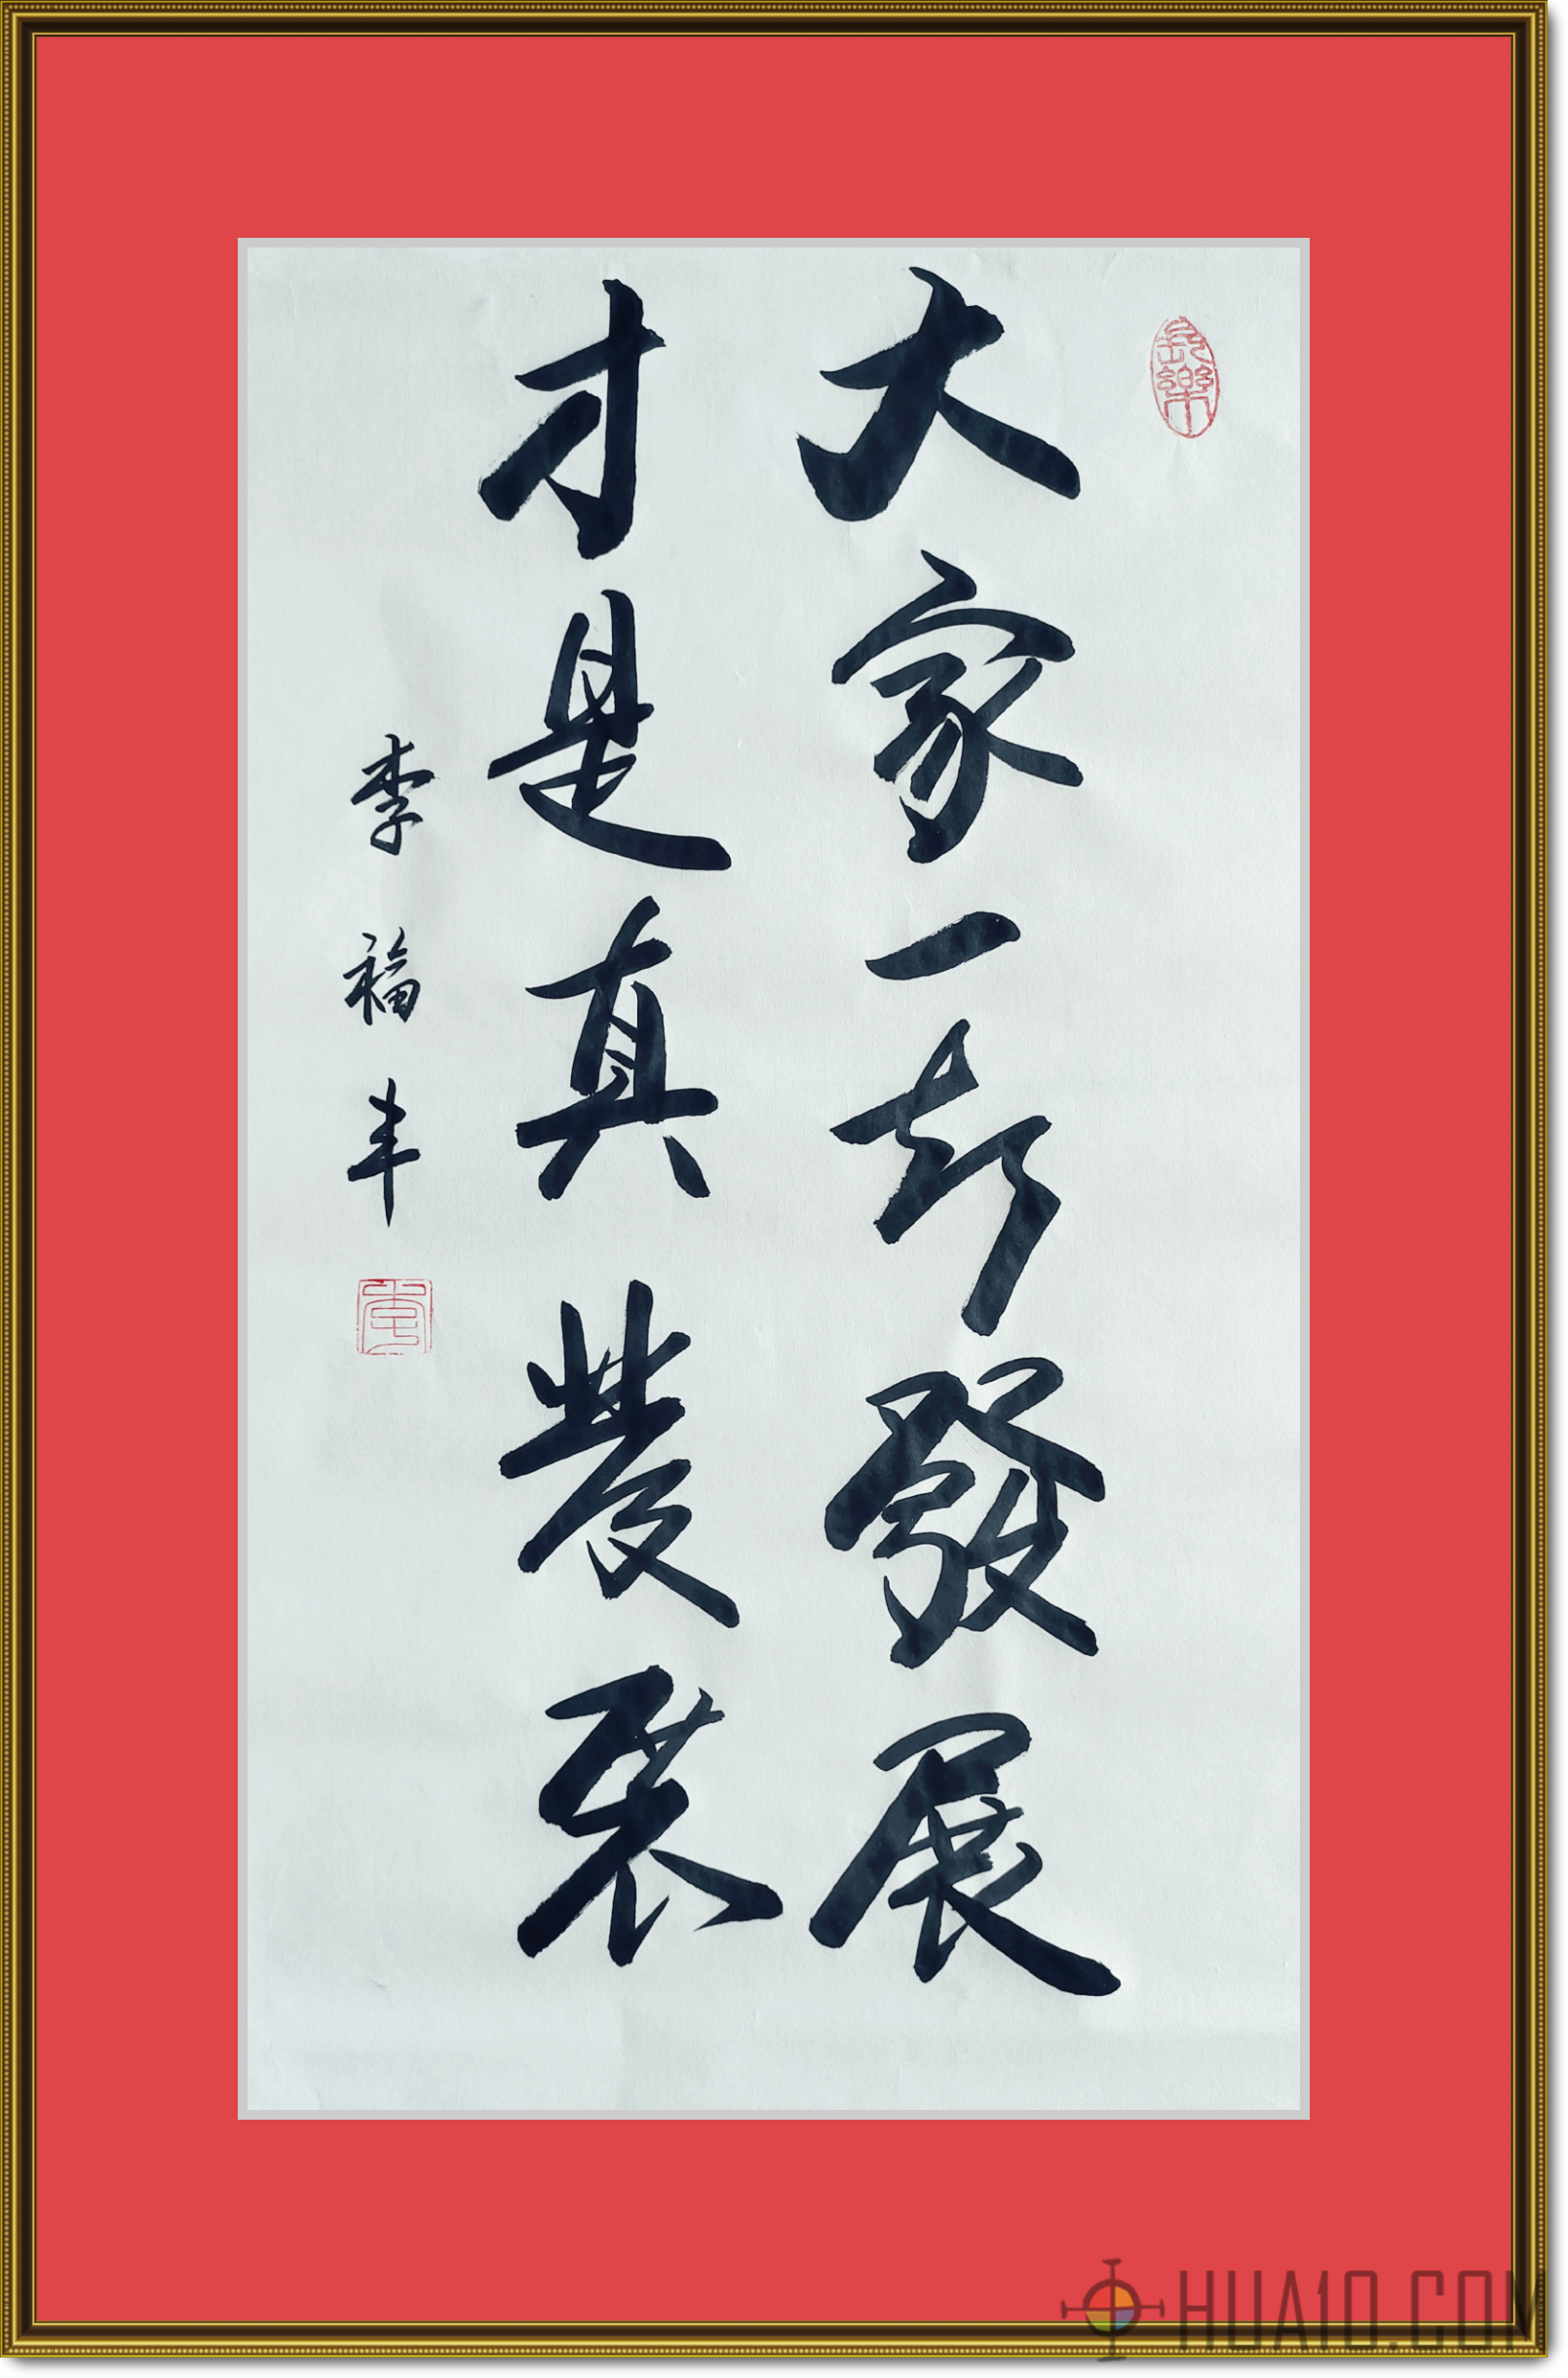 長樂
大家一起發展
才是真發展
李福丰
HUA10.COM